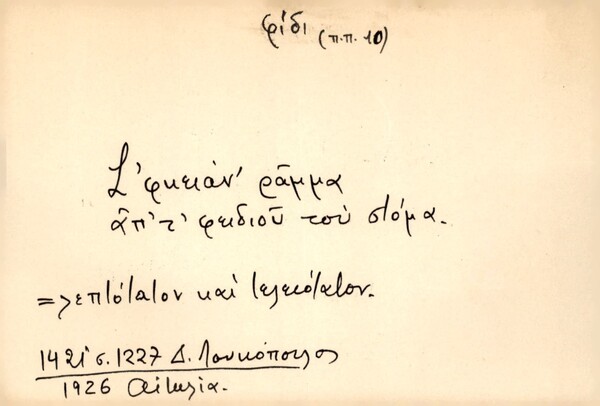 φίδι (π.π. 10)
Σ'φκειάν' ράμμα
ἀπ'τ' φειδιοῦ τοὺ στόμα.
=> λεπτότατον καὶ τελειότατον.
1421 σ. 1227 Δ. Λουκόπουλος
1926 Αἰτωλία.